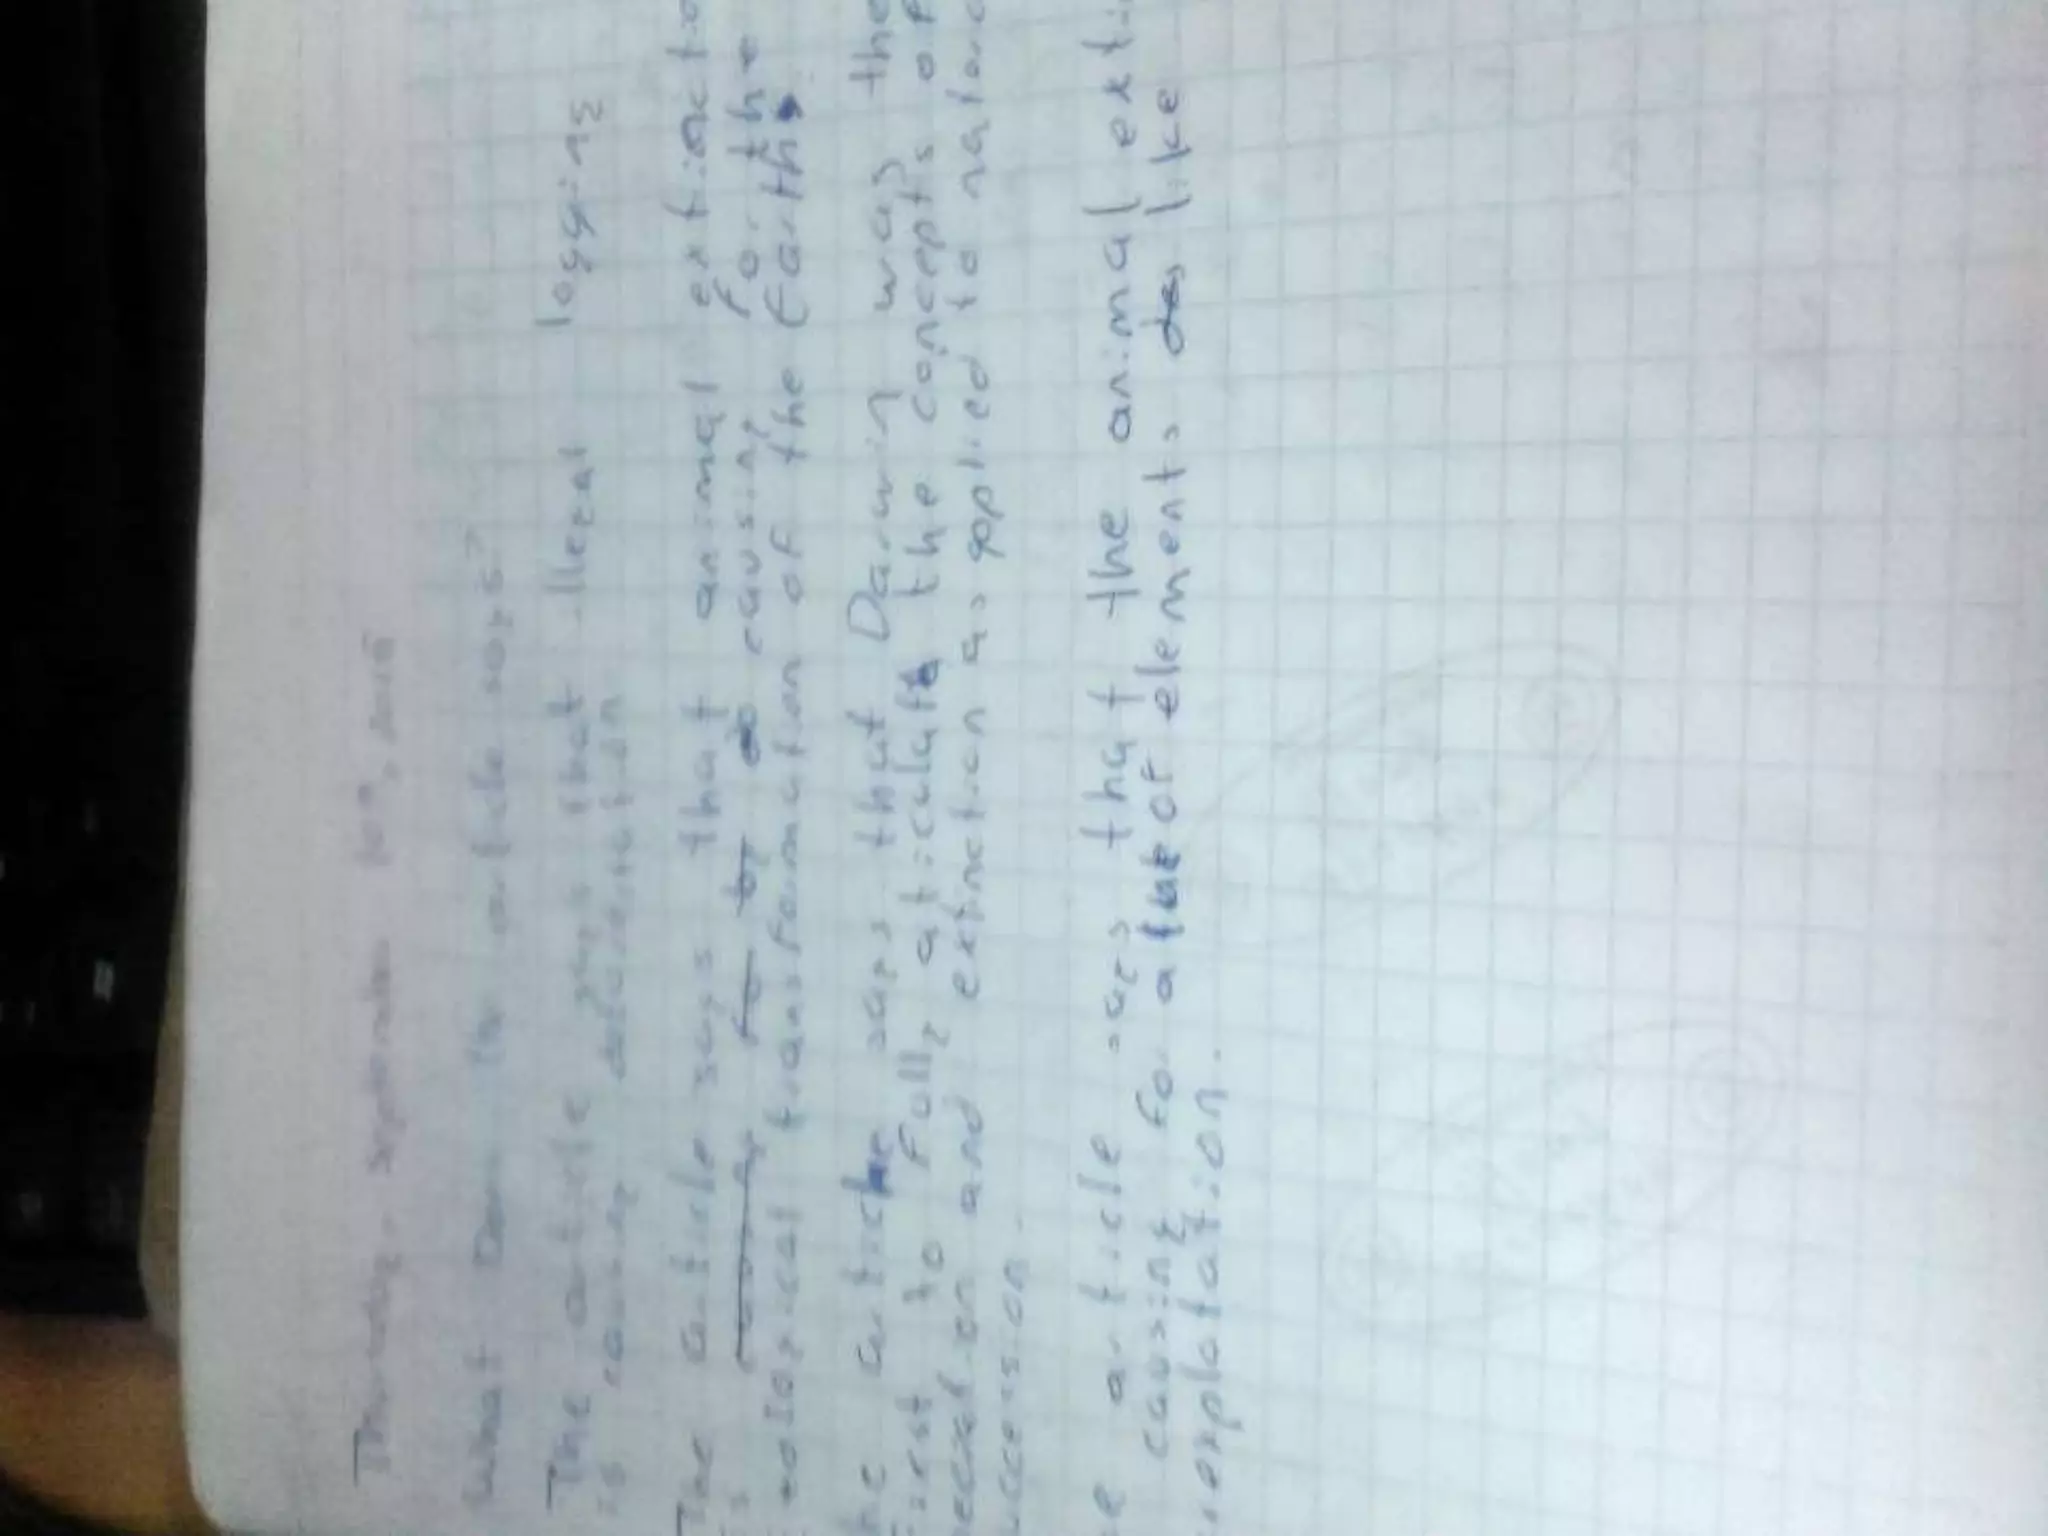 Thursday, september 10th,
What Does the article says?
The article says that illegal logging
is causing deforestation
The article says that animal extinctio
causing for the
transformation of the Earth.
he article says that Darwin was the
First to Fully aticulate the concepts of
and extinction as applied to natural
uccession.
e article says that the animal exti
causing for a lot of elements like
explotation.